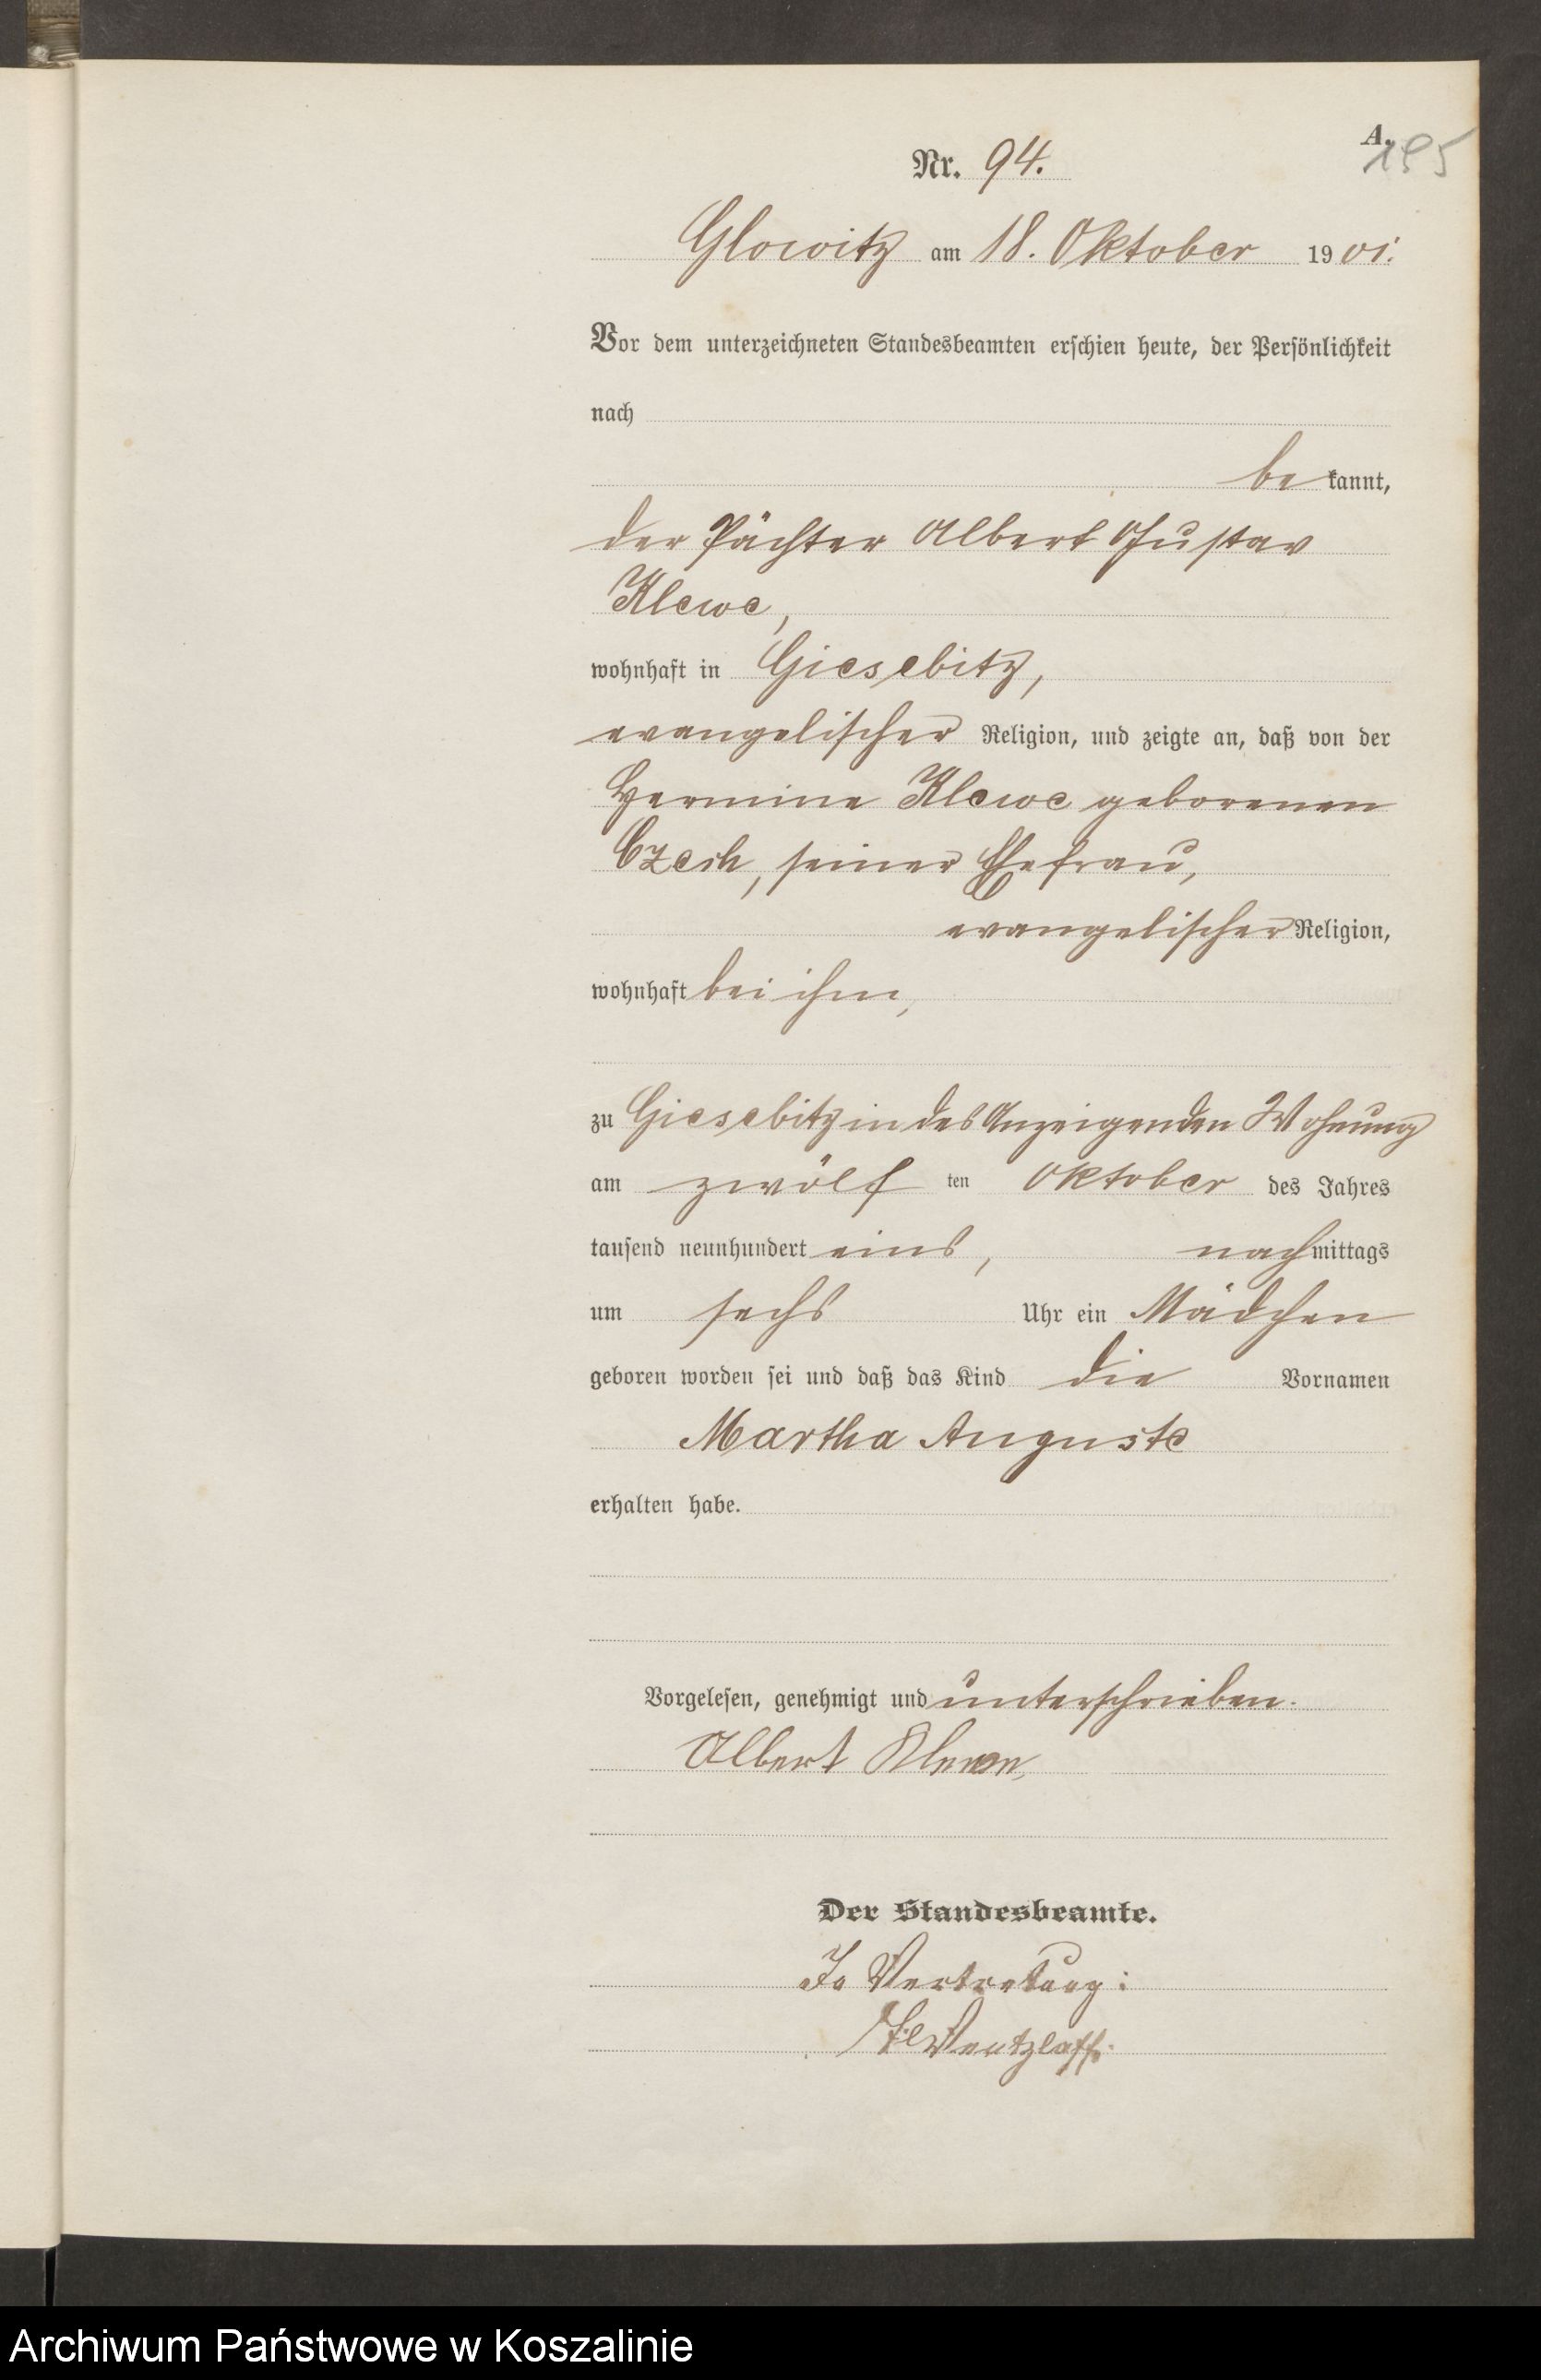 A.
195
Nr. 94.
Glowitz am 18. Oktober 1901.
Vor dem unterzeichneten Standesbeamten erschien heute, der Persönlichkeit
nach
bekannt,
der Pächter Albert Gustav
Klewe,
wohnhaft in Giesebitz,
evangelischer Religion, und zeigte an, daß von der
Hermine Klewe geborenen
Czech, seiner Ehefrau,
evangelischer Religion,
wohnhaft bei ihm,
zu Giesebitz in des Anzeigenden Wohnung
am zwölften Oktober des Jahres
tausend neunhundert eins, nachmittags
um sechs Uhr ein Mädchen
geboren worden sei und daß das Kind die Vornamen
Martha Auguste
erhalten habe.
Vorgelesen, genehmigt und unterschrieben.
Albert Klewe,
Der Standesbeamte.
In Vertretung:
Wentzlaff.
Archiwum Państwowe w Koszalinie